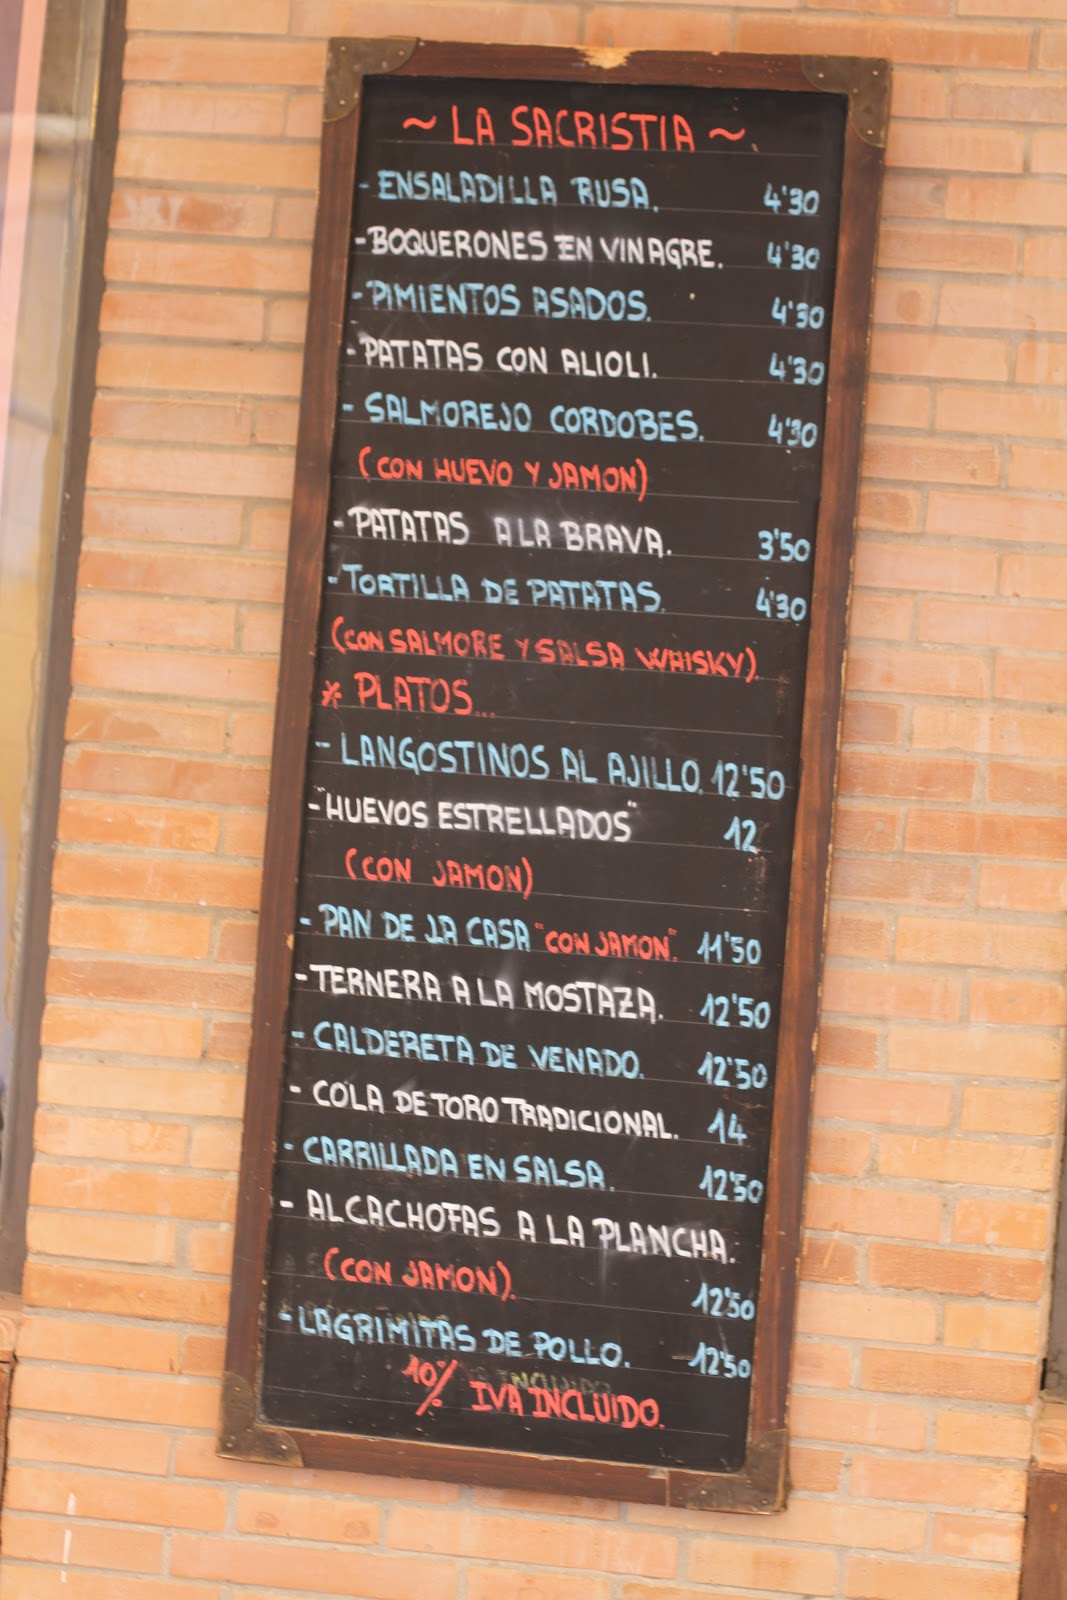 ~ LA SACRISTIA ~
- ENSALADILLA RUSA. 4'30
- BOQUERONES EN VINAGRE. 4'30
- PIMIENTOS ASADOS. 4'30
- PATATAS CON ALIOLI. 4'30
- SALMOREJO CORDOBES. 4'30
(CON HUEVO Y JAMON)
- PATATAS A LA BRAVA. 3'50
- TORTILLA DE PATATAS. 4'30
(CON SALMORE Y SALSA WHISKY).
* PLATOS...
- LANGOSTINOS AL AJILLO. 12'50
- "HUEVOS ESTRELLADOS" 12
(CON JAMON)
- PAN DE LA CASA "CON JAMON". 11'50
- TERNERA A LA MOSTAZA. 12'50
- CALDERETA DE VENADO. 12'50
- COLA DE TORO TRADICIONAL. 14
- CARRILLADA EN SALSA. 12'50
- ALCACHOFAS A LA PLANCHA.
(CON JAMON). 12'50
- LAGRIMITAS DE POLLO. 12'50
10% IVA INCLUIDO.